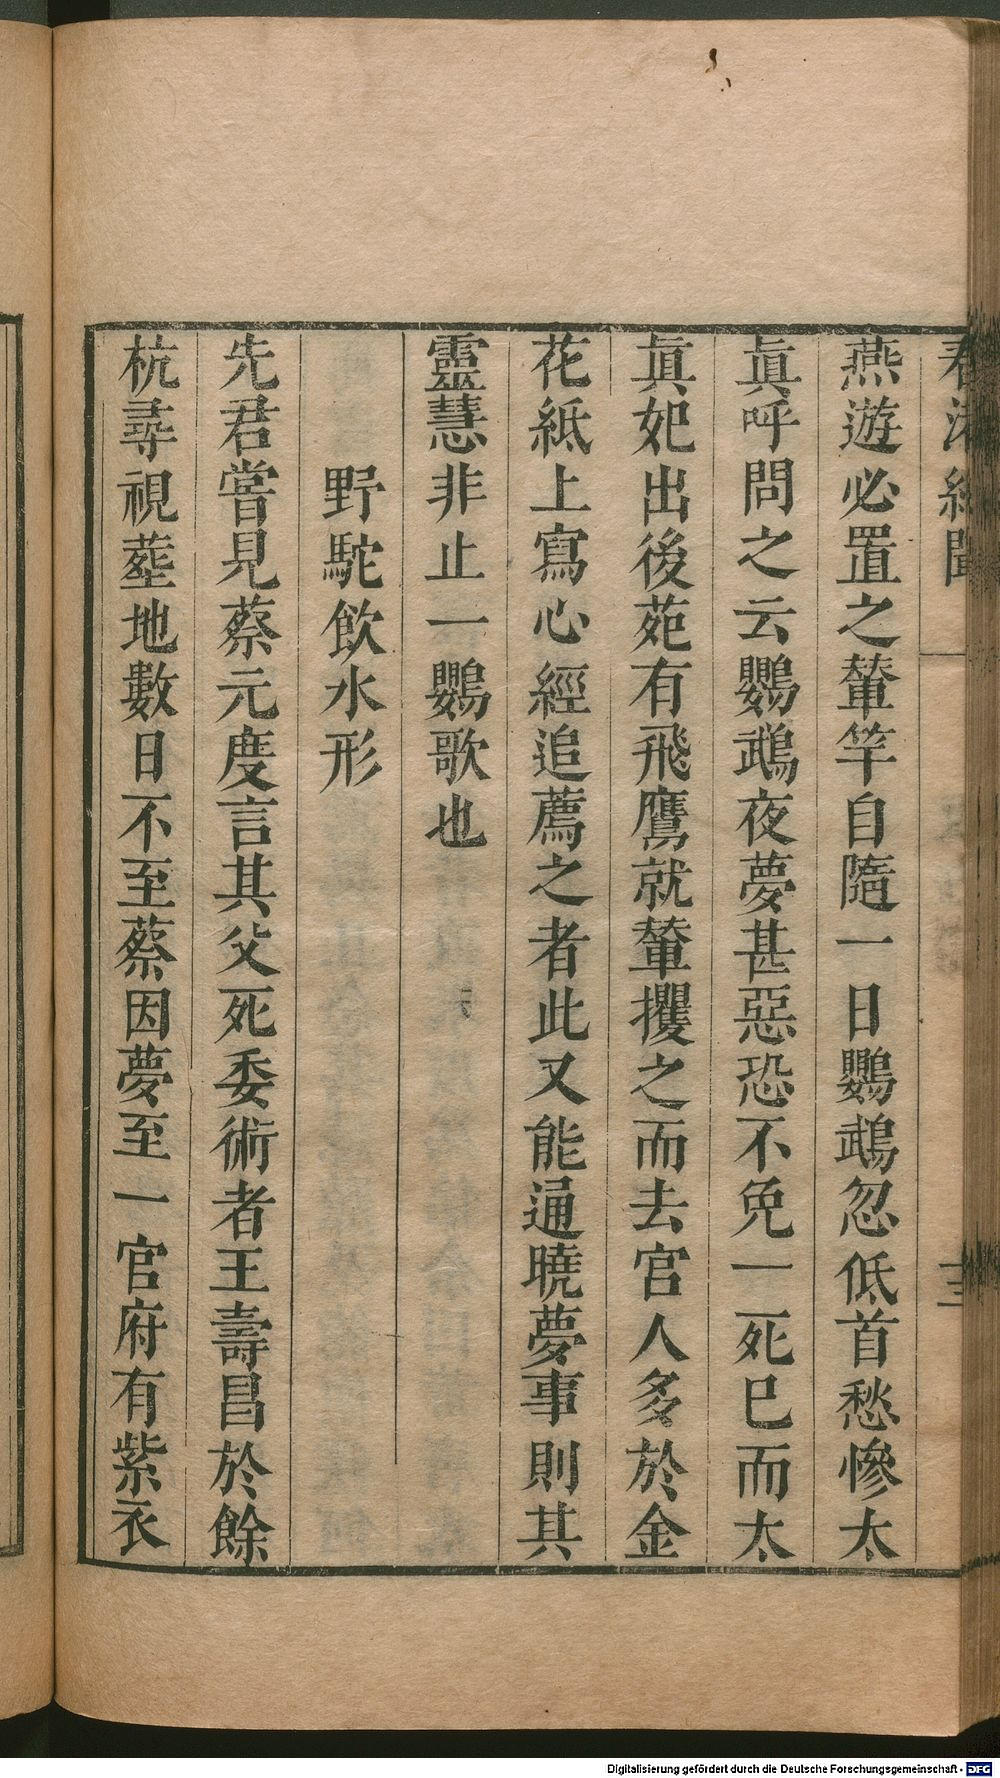 春渚紀聞
燕遊必置之輦竿自隨一日鸚鵡忽低首愁慘太
眞呼問之云鸚鵡夜夢甚惡恐不免一死巳而太
眞妃出後苑有飛鷹就輦攫之而去官人多於金
花紙上寫心經追薦之者此又能通曉夢事則其
靈慧非止一鸚歌也
野駝飲水形
先君嘗見蔡元度言其父死委術者王壽昌於餘
杭尋視塟地數日不至蔡因夢至一官府有紫衣
Digitalisierung gefördert durch die Deutsche Forschungsgemeinschaft - DFG